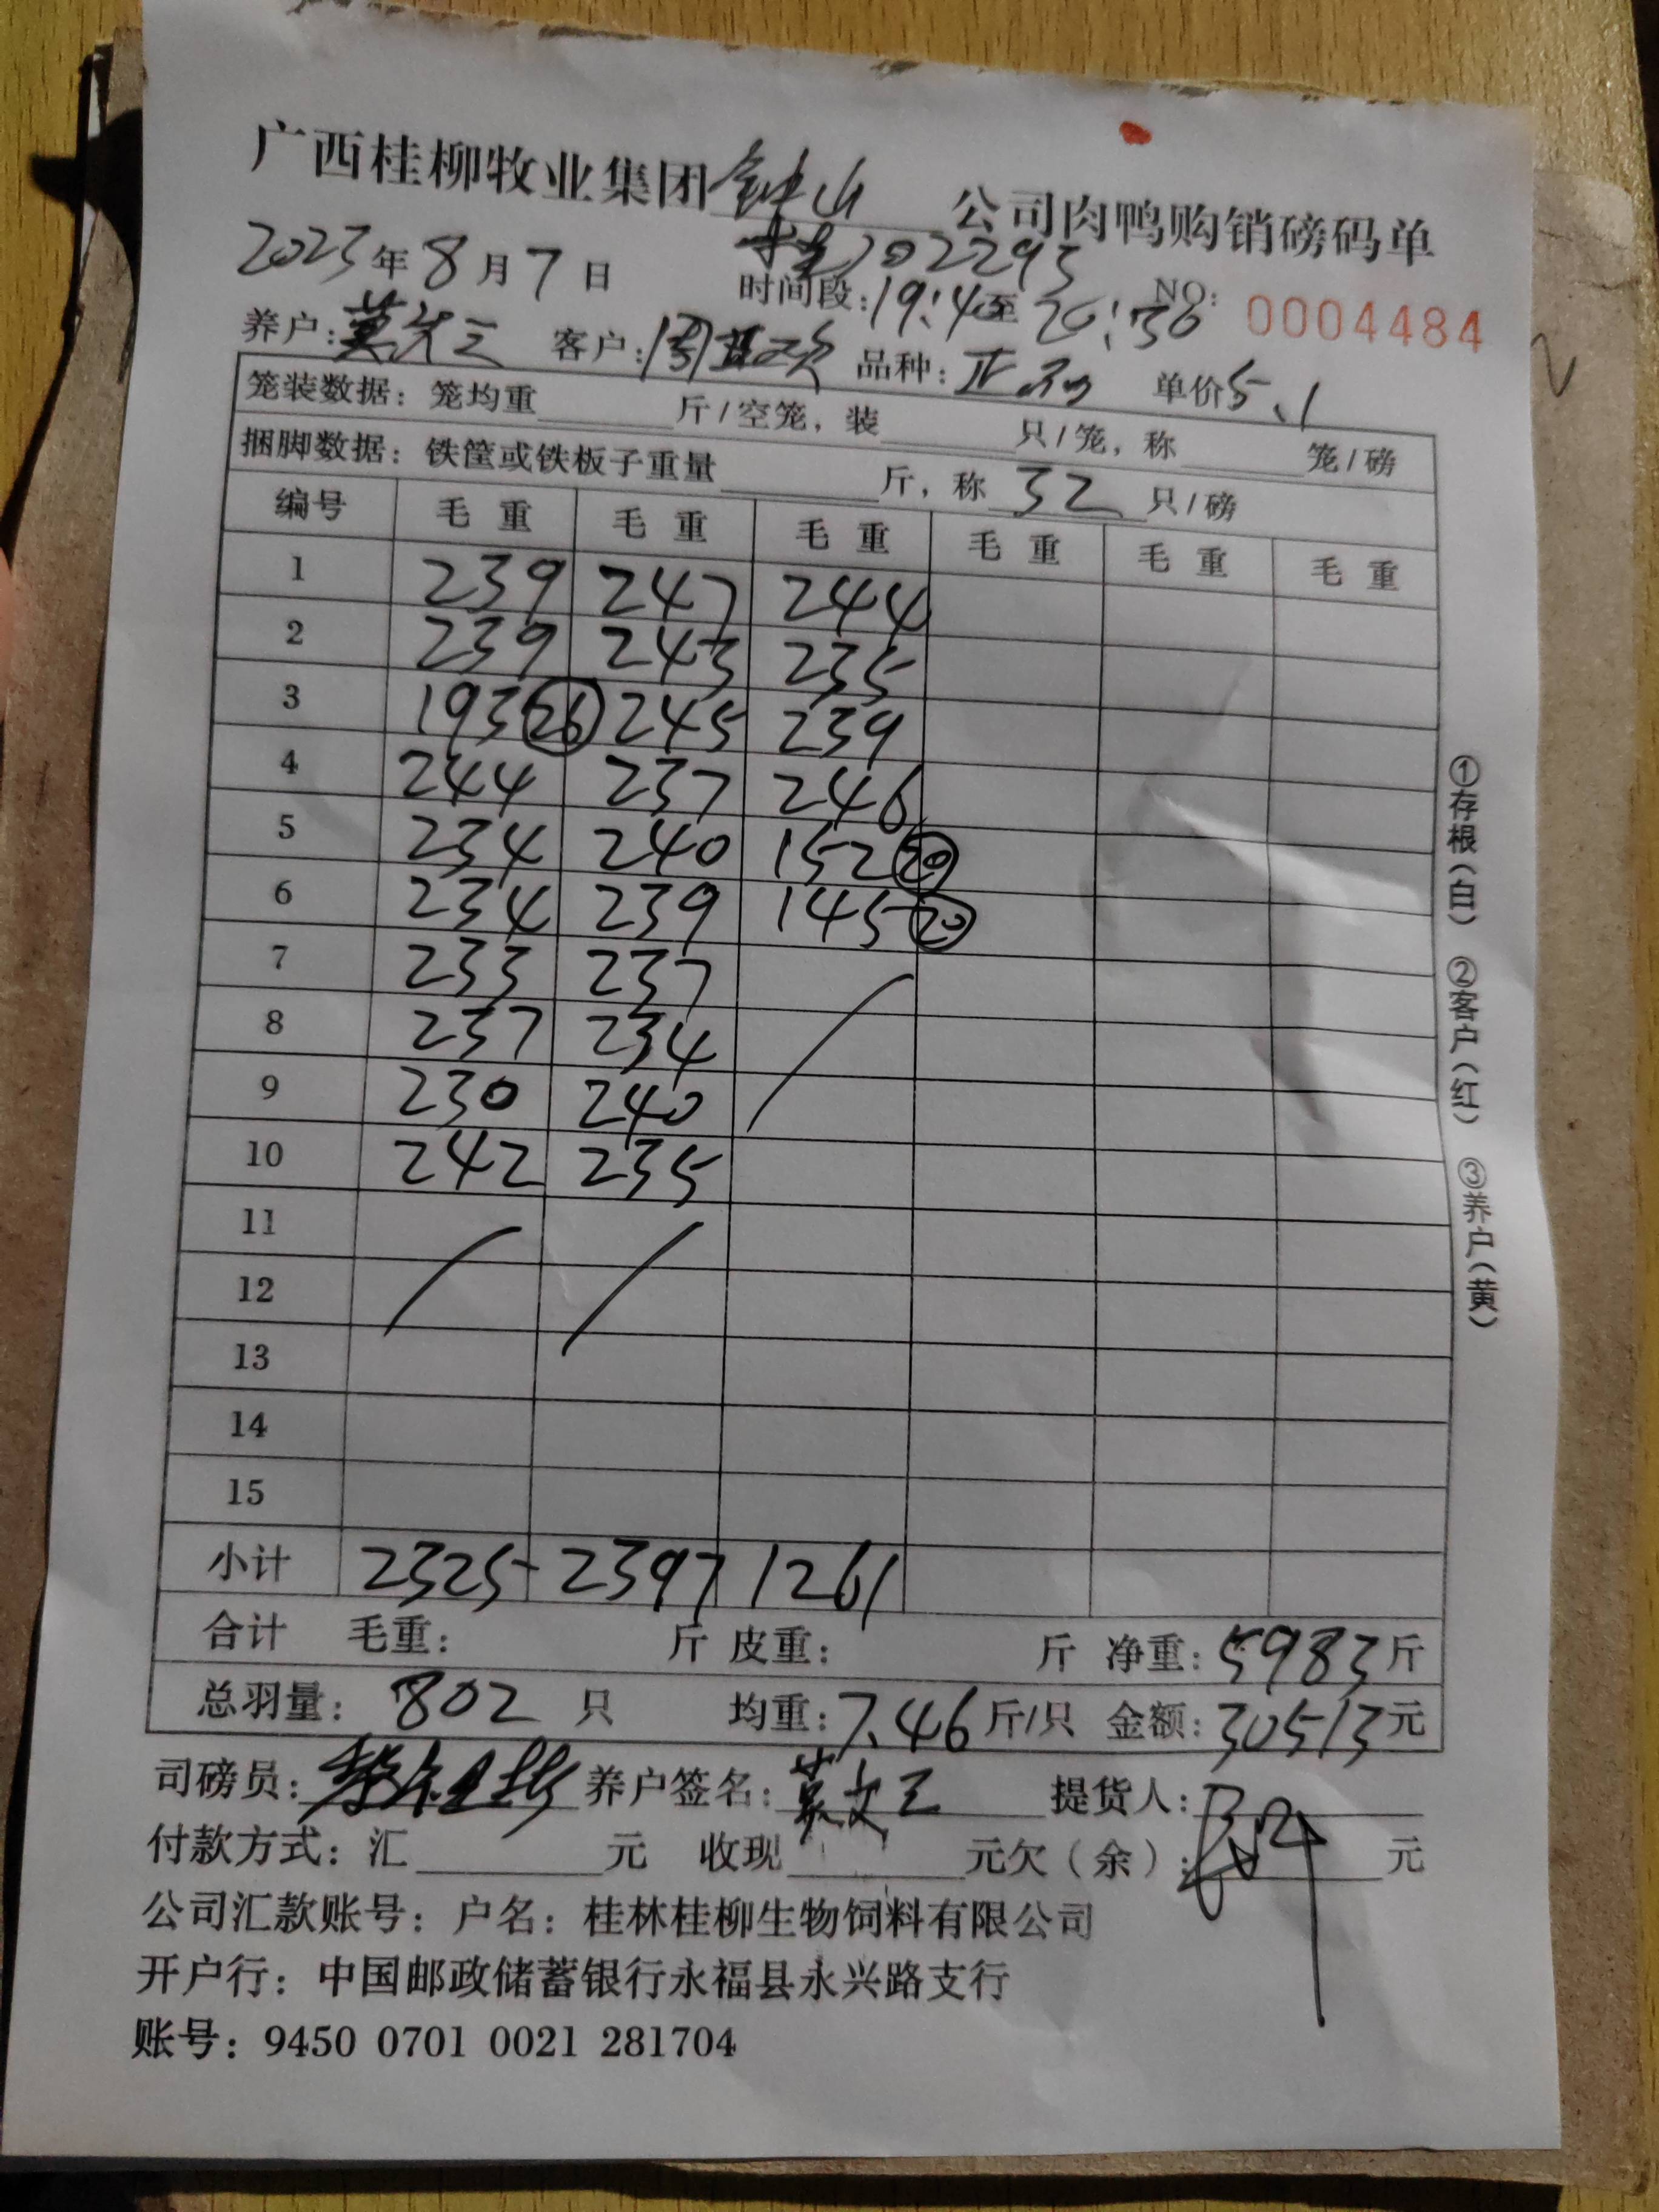 广西桂柳牧业集团钟山公司肉鸭购销磅码单
2023年8月7日 102293
时间段:19:40至20:38 NO: 0004484
养户:莫文三 客户:周 品种: 单价5.1
笼装数据：笼均重 斤/空笼，装 只/笼，称 笼/磅
捆脚数据：铁筐或铁板子重量 斤，称 32 只/磅
编号 毛重 毛重 毛重 毛重 毛重 毛重
1 239 247 244
2 239 243 235
3 193 26 245 239
4 244 237 246
5 234 240 152 20
6 234 239 145 20
7 233 237
8 237 234
9 230 240
10 242 235
11
12
13
14
15
小计 2325 2397 1261
合计 毛重: 斤 皮重: 斤 净重:5983斤
总羽量: 802 只 均重:7.46斤/只 金额:30513元
司磅员: 养户签名:莫文三 提货人:
付款方式：汇 元 收现 元欠（余）: 元
公司汇款账号：户名：桂林桂柳生物饲料有限公司
开户行：中国邮政储蓄银行永福县永兴路支行
账号：9450 0701 0021 281704
①存根(白) ②客户(红) ③养户(黄)